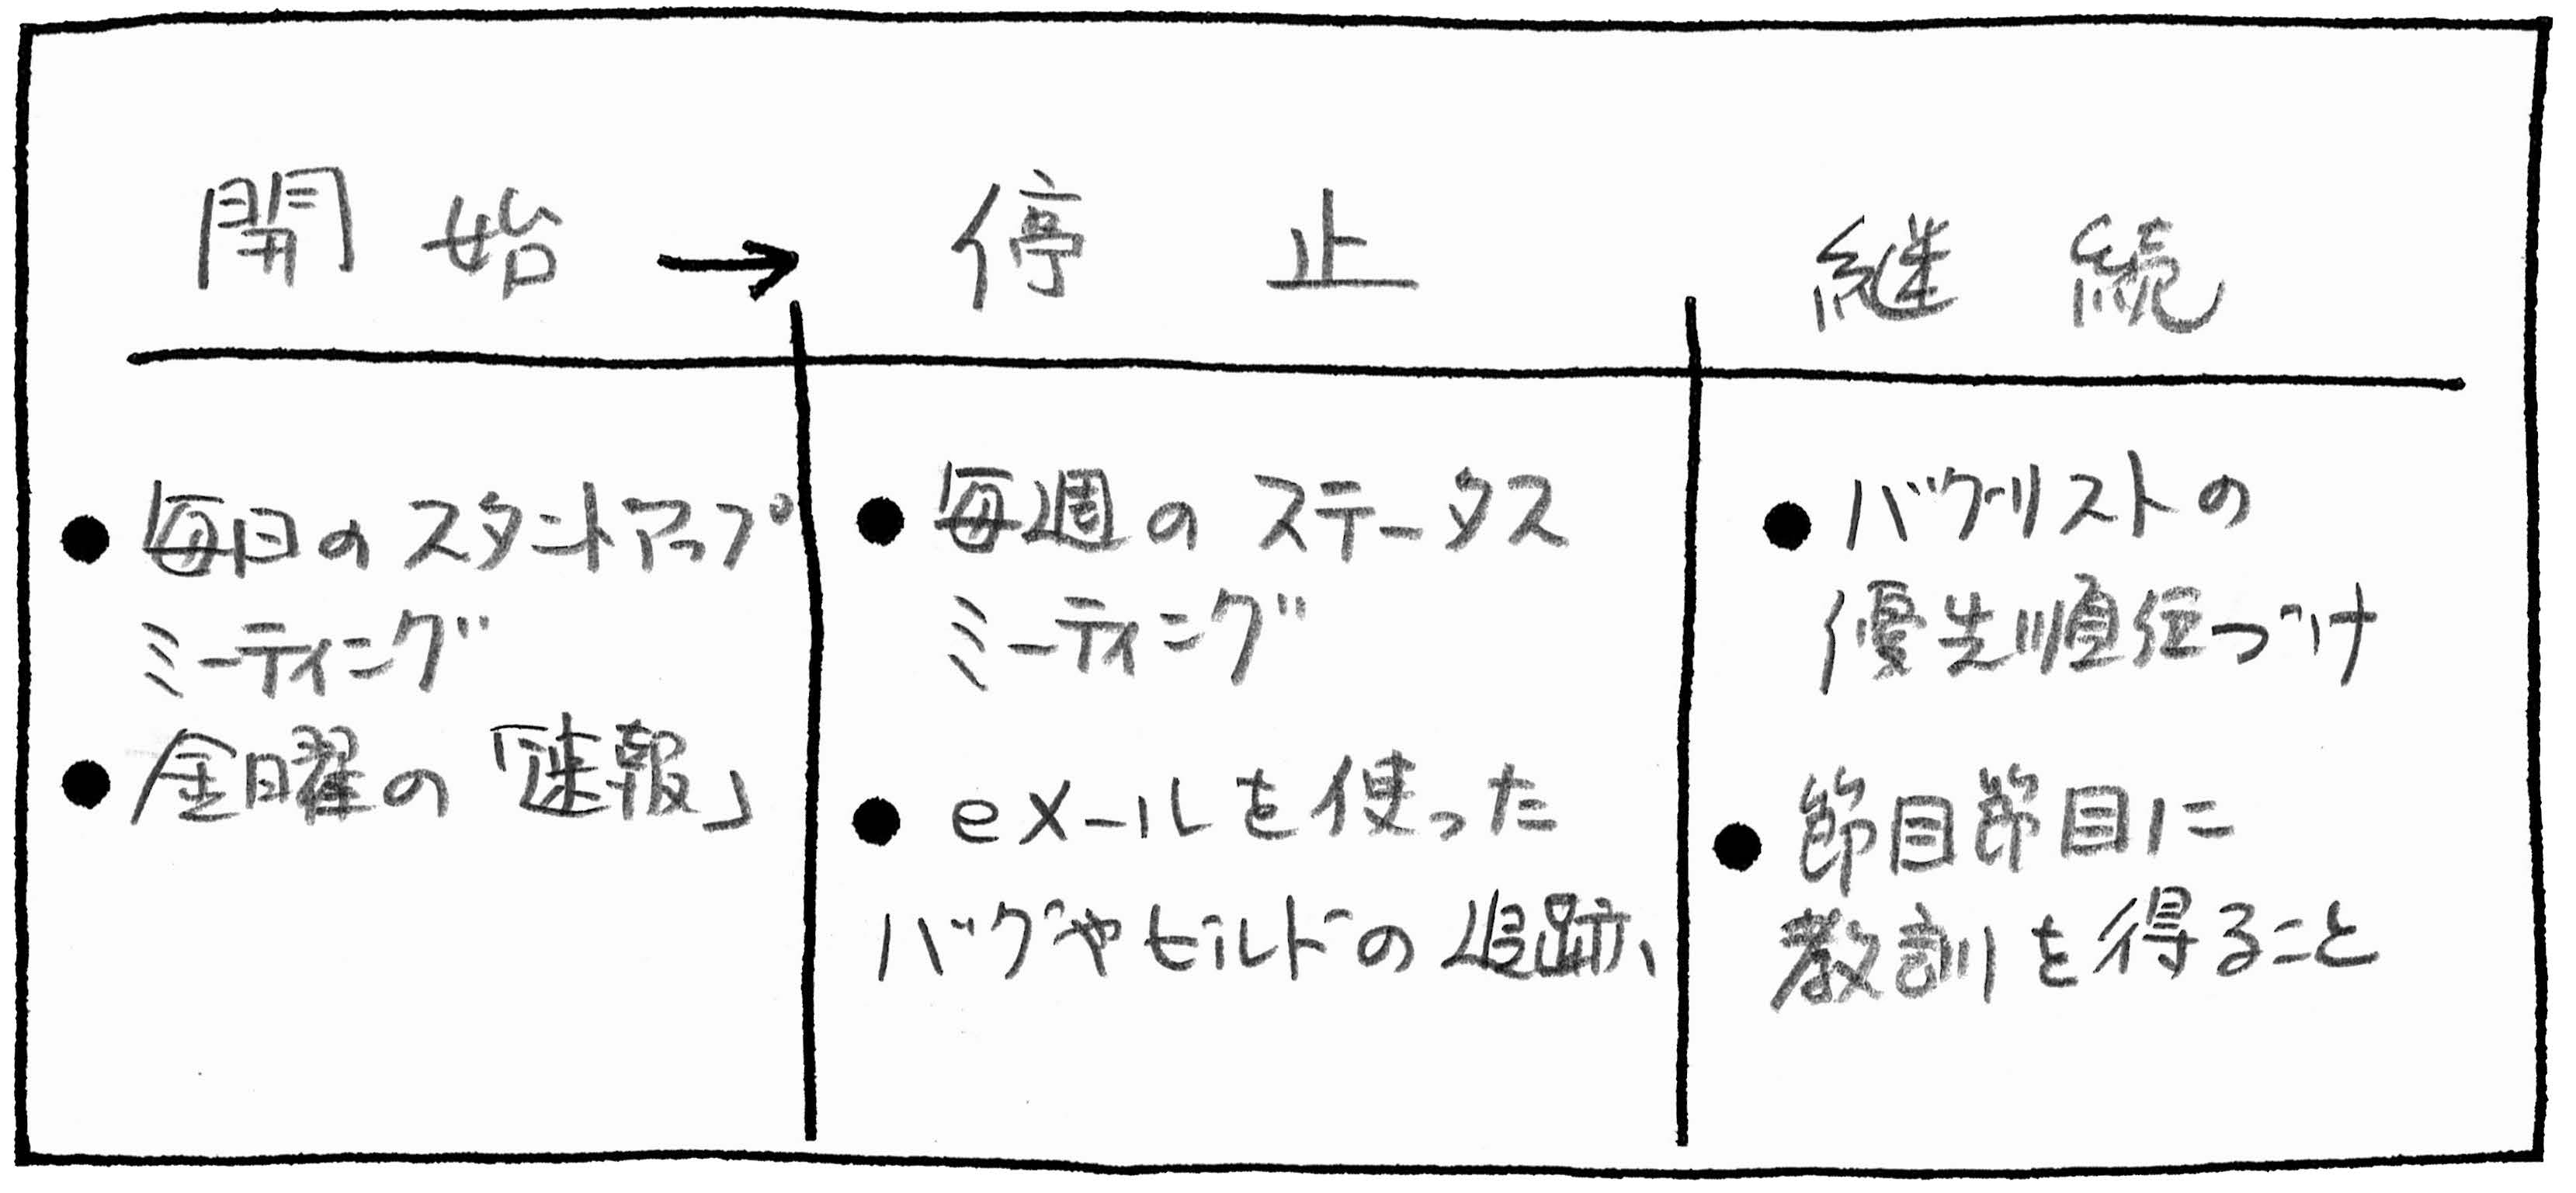 開始 → 停止 継続
● 毎日のスタンドアップ
ミーティング
● 金曜の「速報」
● 毎週のステータス
ミーティング
● eメールを使った
バグやビルドの追跡、
● バグリストの
優先順位づけ
● 節目節目に
教訓を得ること